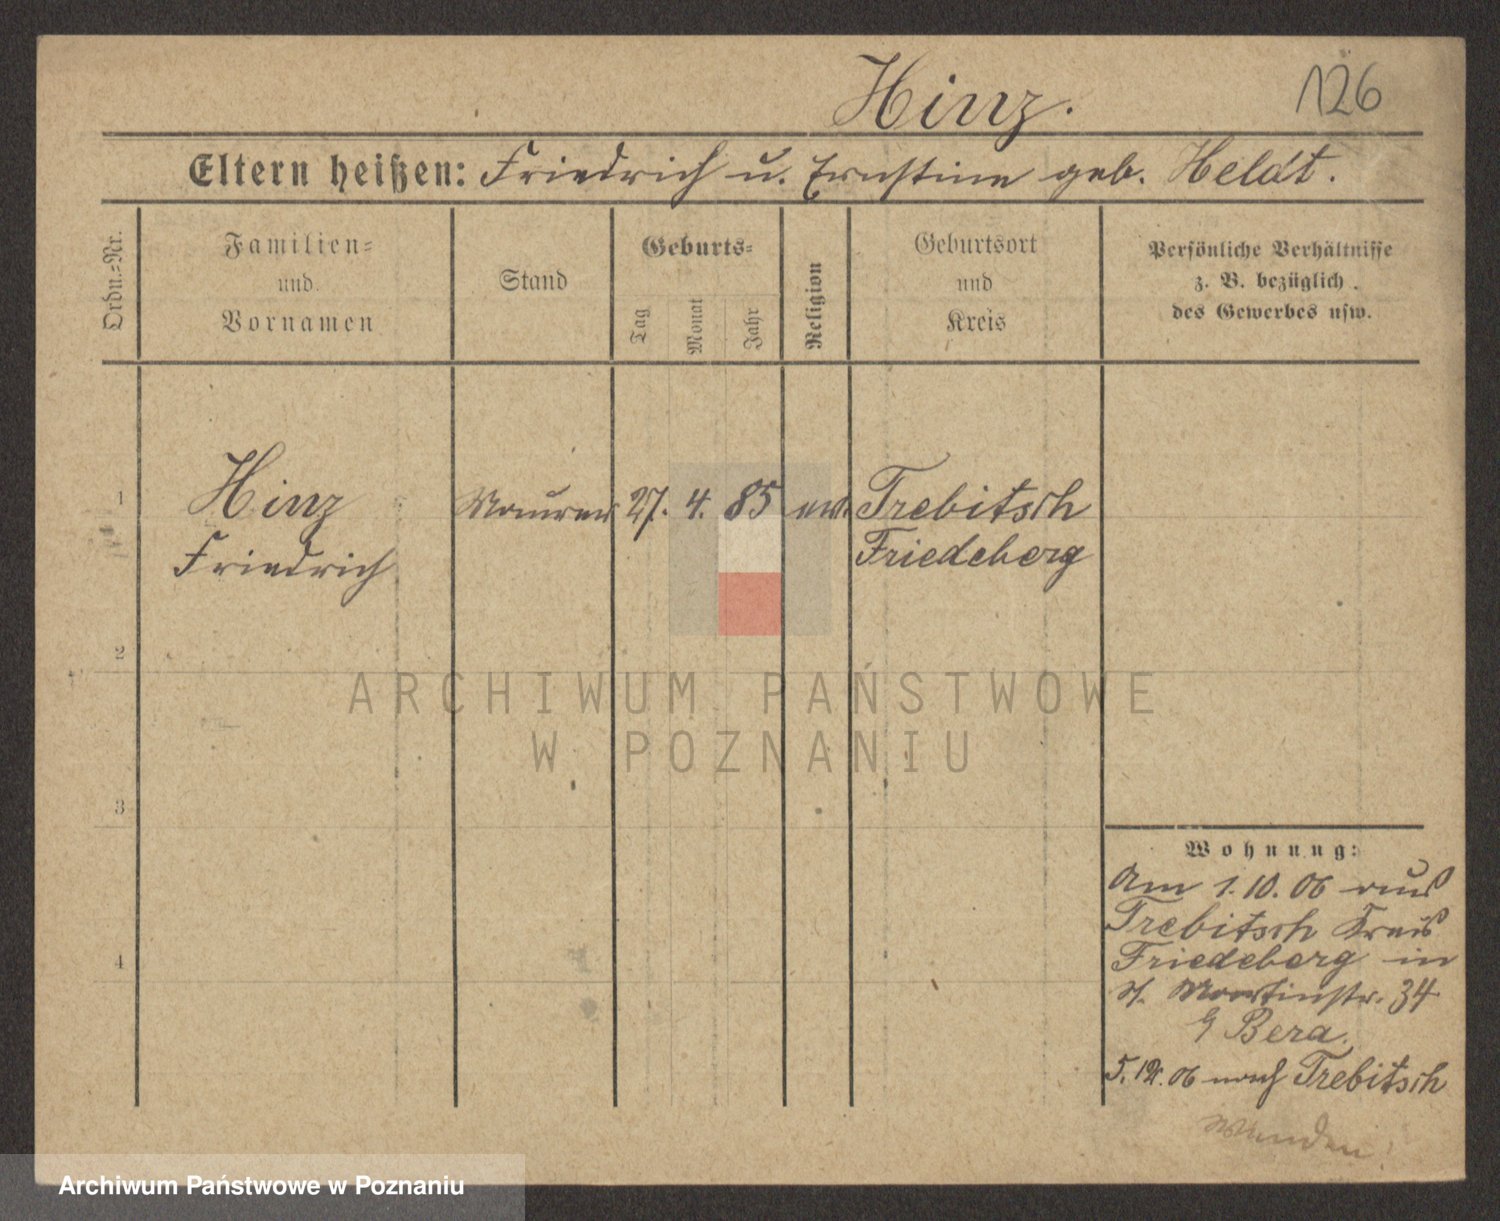 Hinz.
126
Eltern heißen: Friedrich u. Ernstine geb. Heldt.
Ordn.=Nr.
Familien=
und
Vornamen
Stand
Geburts=
Tag
Monat
Jahr
Religion
Geburtsort
und
Kreis
Persönliche Verhältnisse
z. B. bezüglich
des Gewerbes usw.
1
Hinz Maurer 27. 4. 85 ev. Trebitsch
Friedrich Friedeberg
2
ARCHIWUM PAŃSTWOWE
W POZNANIU
3
Wohnung:
Am 1.10.06 aus
Trebitsch Kreis
4
Friedeberg in
Martinstr. 34
Bera.
5.12.06 nach Trebitsch
Wenden!
Archiwum Państwowe w Poznaniu